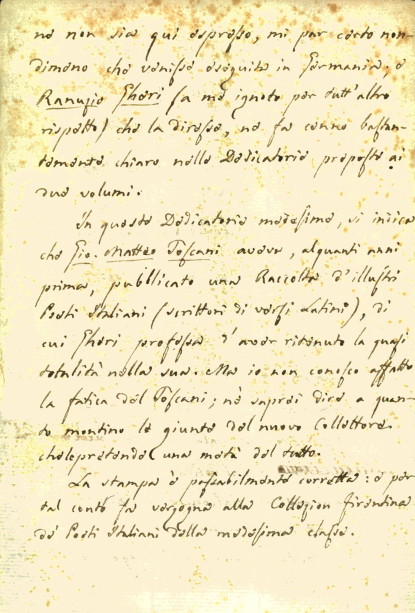 ne non sia qui espresso, mi par certo non-
dimeno che venisse eseguita in Germania, e
Ranuzio Gheri (a me ignoto per tutt'altro
rispetto) che la diresse, ne fa cenno bastan-
temente chiaro nelle Dedicatorie preposte ai
due volumi.
In queste Dedicatorie medesime, si indica
che Gio. Matteo Toscani aveva, alquanti anni
prima, pubblicato una Raccolta d'illustri
Poeti Italiani (scrittori di versi Latini), di
cui Gheri professa d'aver ritenuto la quasi
totalità nella sua. Ma io non conosco affatto
la fatica del Toscani; nè saprei dire a quan-
to montino le giunte del nuovo Collettore.
che pretende una metà del tutto.
La stampa è passabilmente corretta: e per
tal conto fa vergogna alla Collezion fiorentina
de' Poeti Italiani della medesima classe.